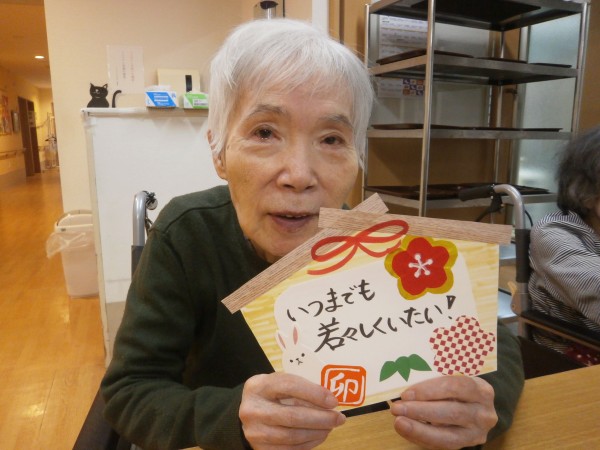 いつまでも
若々しくいたい!
卯